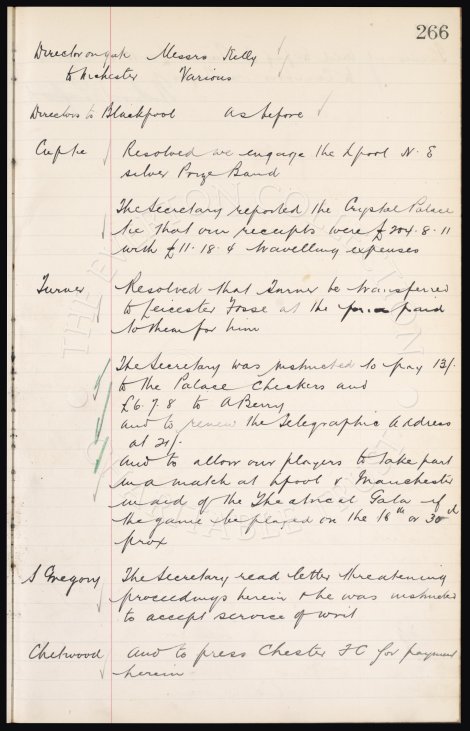 266
Director on gate Messrs Kelly
to Leicester Various
Directors to Blackpool As before
Cup tie Resolved we engage the Lpool N. E
Silver Prize Band
The Secretary reported the Crystal Palace
tie that our receipts were £204.8.11
with £11.18.4 travelling expenses
Turner Resolved that Turner be transferred
to Leicester Fosse at the paid
to them for him
The Secretary was instructed to pay 13/-
to the Palace Checkers and
£6.7.8 to A Berry
and to renew the Telegraphic Address
at 21/-
And to allow our players to take part
in a match at Lpool & Manchester
in aid of the Theatrical Gala if
the game be played on the 16th or 30th
prox
S Gregory The Secretary read letter threatening
proceedings herein & he was instructed
to accept service of writ
Chetwood And to press Chester FC for payment
herein
THE EVERTON COLLECTION
CHARITABLE TRUST